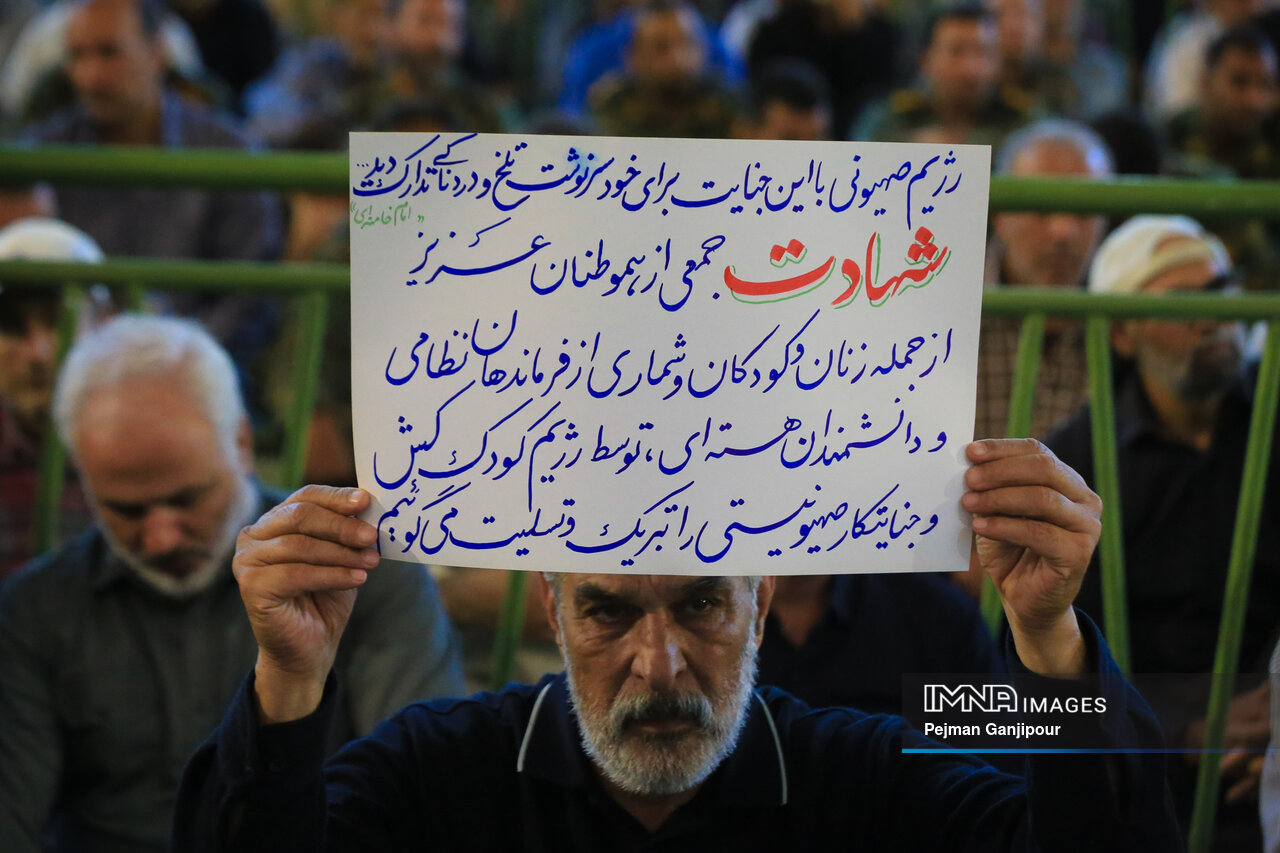 رژیم صهیونی با این جنایت برای خود سرنوشت تلخ و دردناکی تدارک دید...
«امام خامنه‌ای»
شهادت جمعی از هموطنان عزیز
از جمله زنان و کودکان و شماری از فرماندهان نظامی
و دانشمندان هسته‌ای، توسط رژیم کودک کش
و جنایتکار صهیونیستی را تبریک و تسلیت می گوئیم
IMNA IMAGES
Pejman Ganjipour